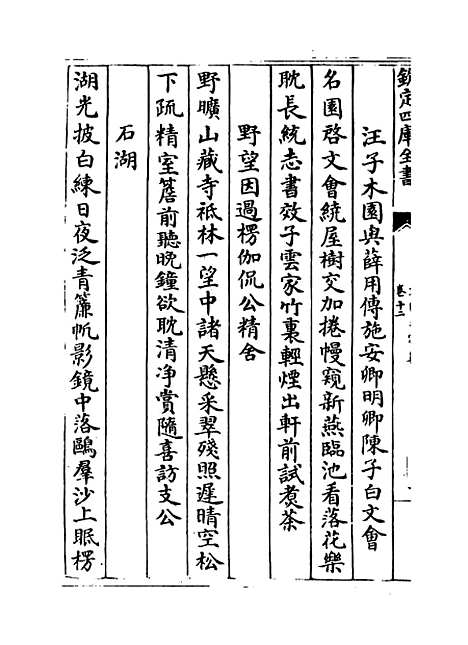 欽定四庫全書
卷十二
汪子木園與薛用傳施安卿明卿陳子白文會
名園啓文會繞屋樹交加捲幔窺新燕臨池看落花樂
耽長統志書效子雲家竹裏輕煙出軒前試煑茶
野望因過楞伽侃公精舍
野曠山藏寺祇林一望中諸天懸采翠殘照遲晴空松
下疏精室簷前聽晚鐘欲耽清净賞隨喜訪支公
石湖
湖光披白練日夜泛青簾帆影鏡中落鷗羣沙上眠楞